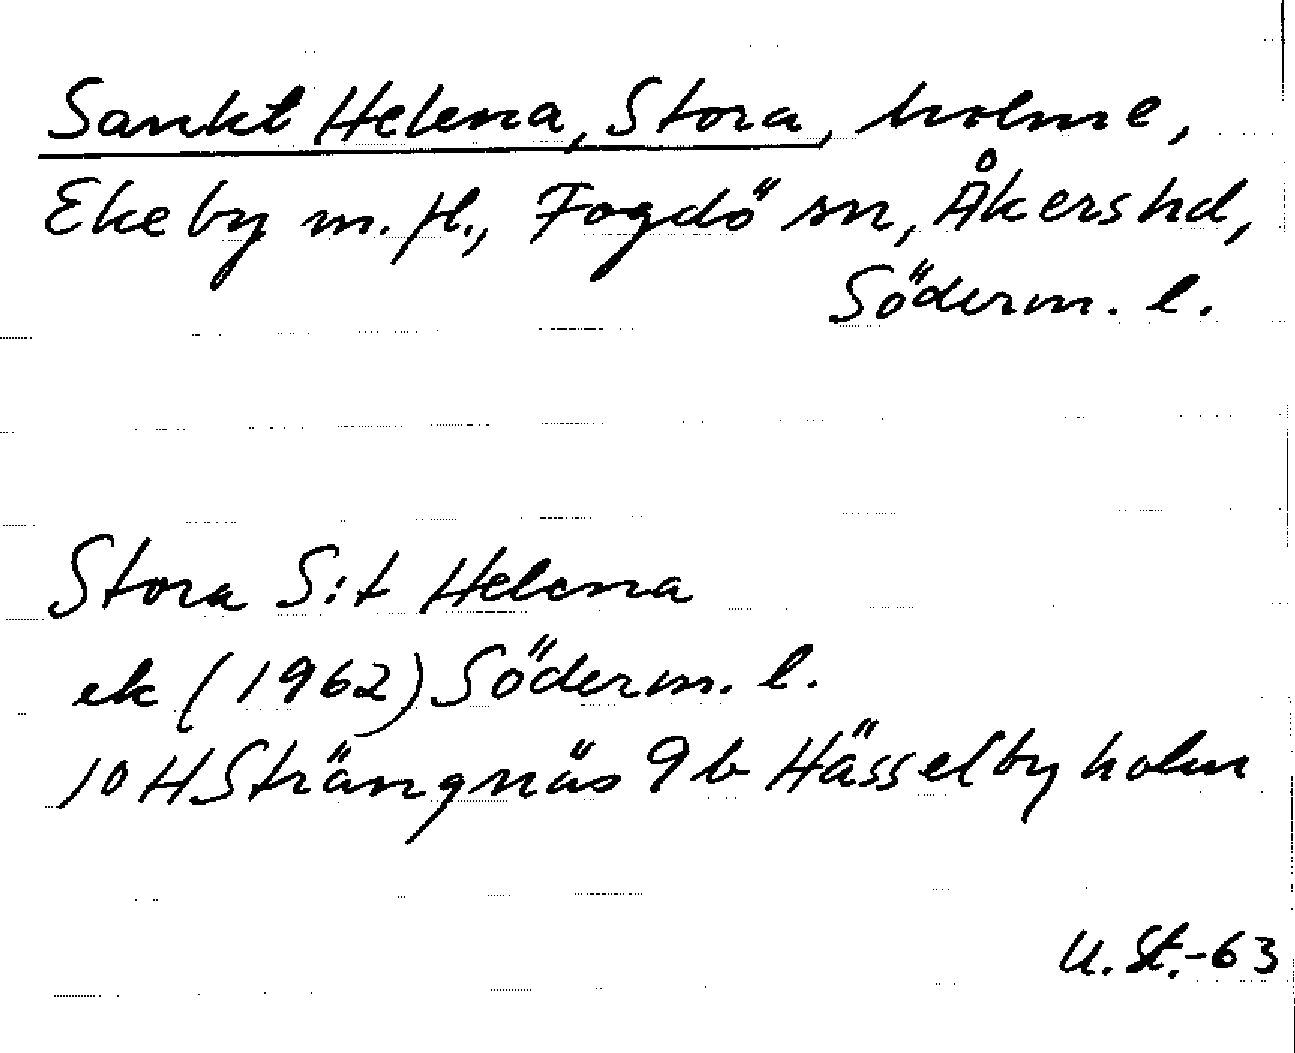 Sankt Helena, Stora, holme,
Ekeby m. fl., Fogdö sn, Åkers hd,
Söderm. l.
Stora S:t Helena
ek (1962) Söderm. l.
10 H Strängnäs 9 b Hässelbyholm
U. St.-63